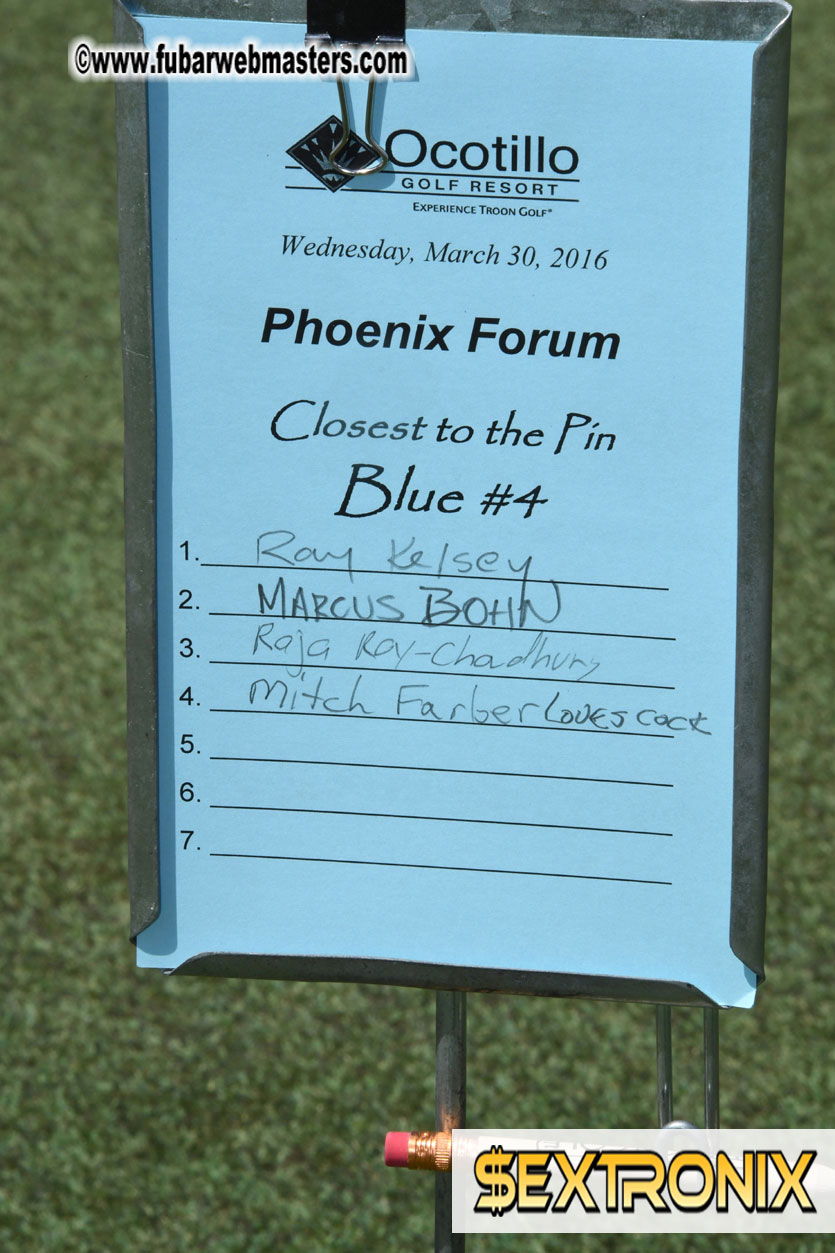 ©www.fubarwebmasters.com
Ocotillo
GOLF RESORT
EXPERIENCE TROON GOLF®
Wednesday, March 30, 2016
Phoenix Forum
Closest to the Pin
Blue #4
1. Ray Kelsey
2. MARCUS BOHN
3. Raja Roy-Chadhury
4. Mitch Farber Loves cock
5.
6.
7.
$EXTRONIX